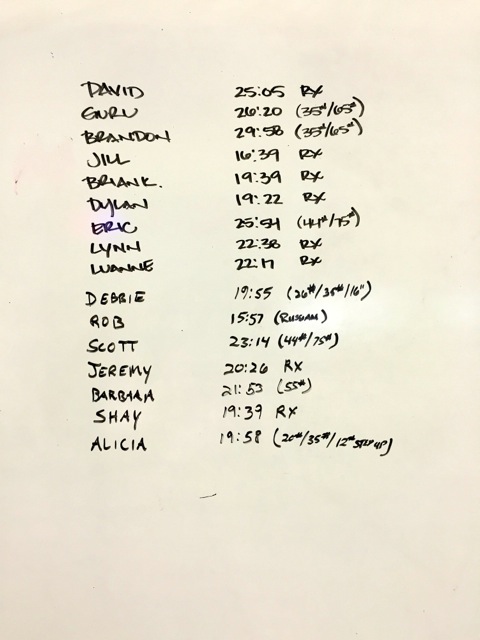 DAVID 25:05 RX
GURU 26:20 (35#/65#)
BRANDON 29:58 (35#/65#)
JILL 16:39 RX
BRIAN K. 19:39 RX
DYLAN 19:22 RX
ERIC 25:54 (44#/75#)
LYNN 22:38 RX
LUANNE 22:17 RX
DEBBIE 19:55 (26#/35#/16")
ROB 15:57 (RUSSIAN)
SCOTT 23:14 (44#/75#)
JEREMY 20:26 RX
BARBARA 21:53 (55#)
SHAY 19:39 RX
ALICIA 19:58 (20#/35#/12" STEP UP)